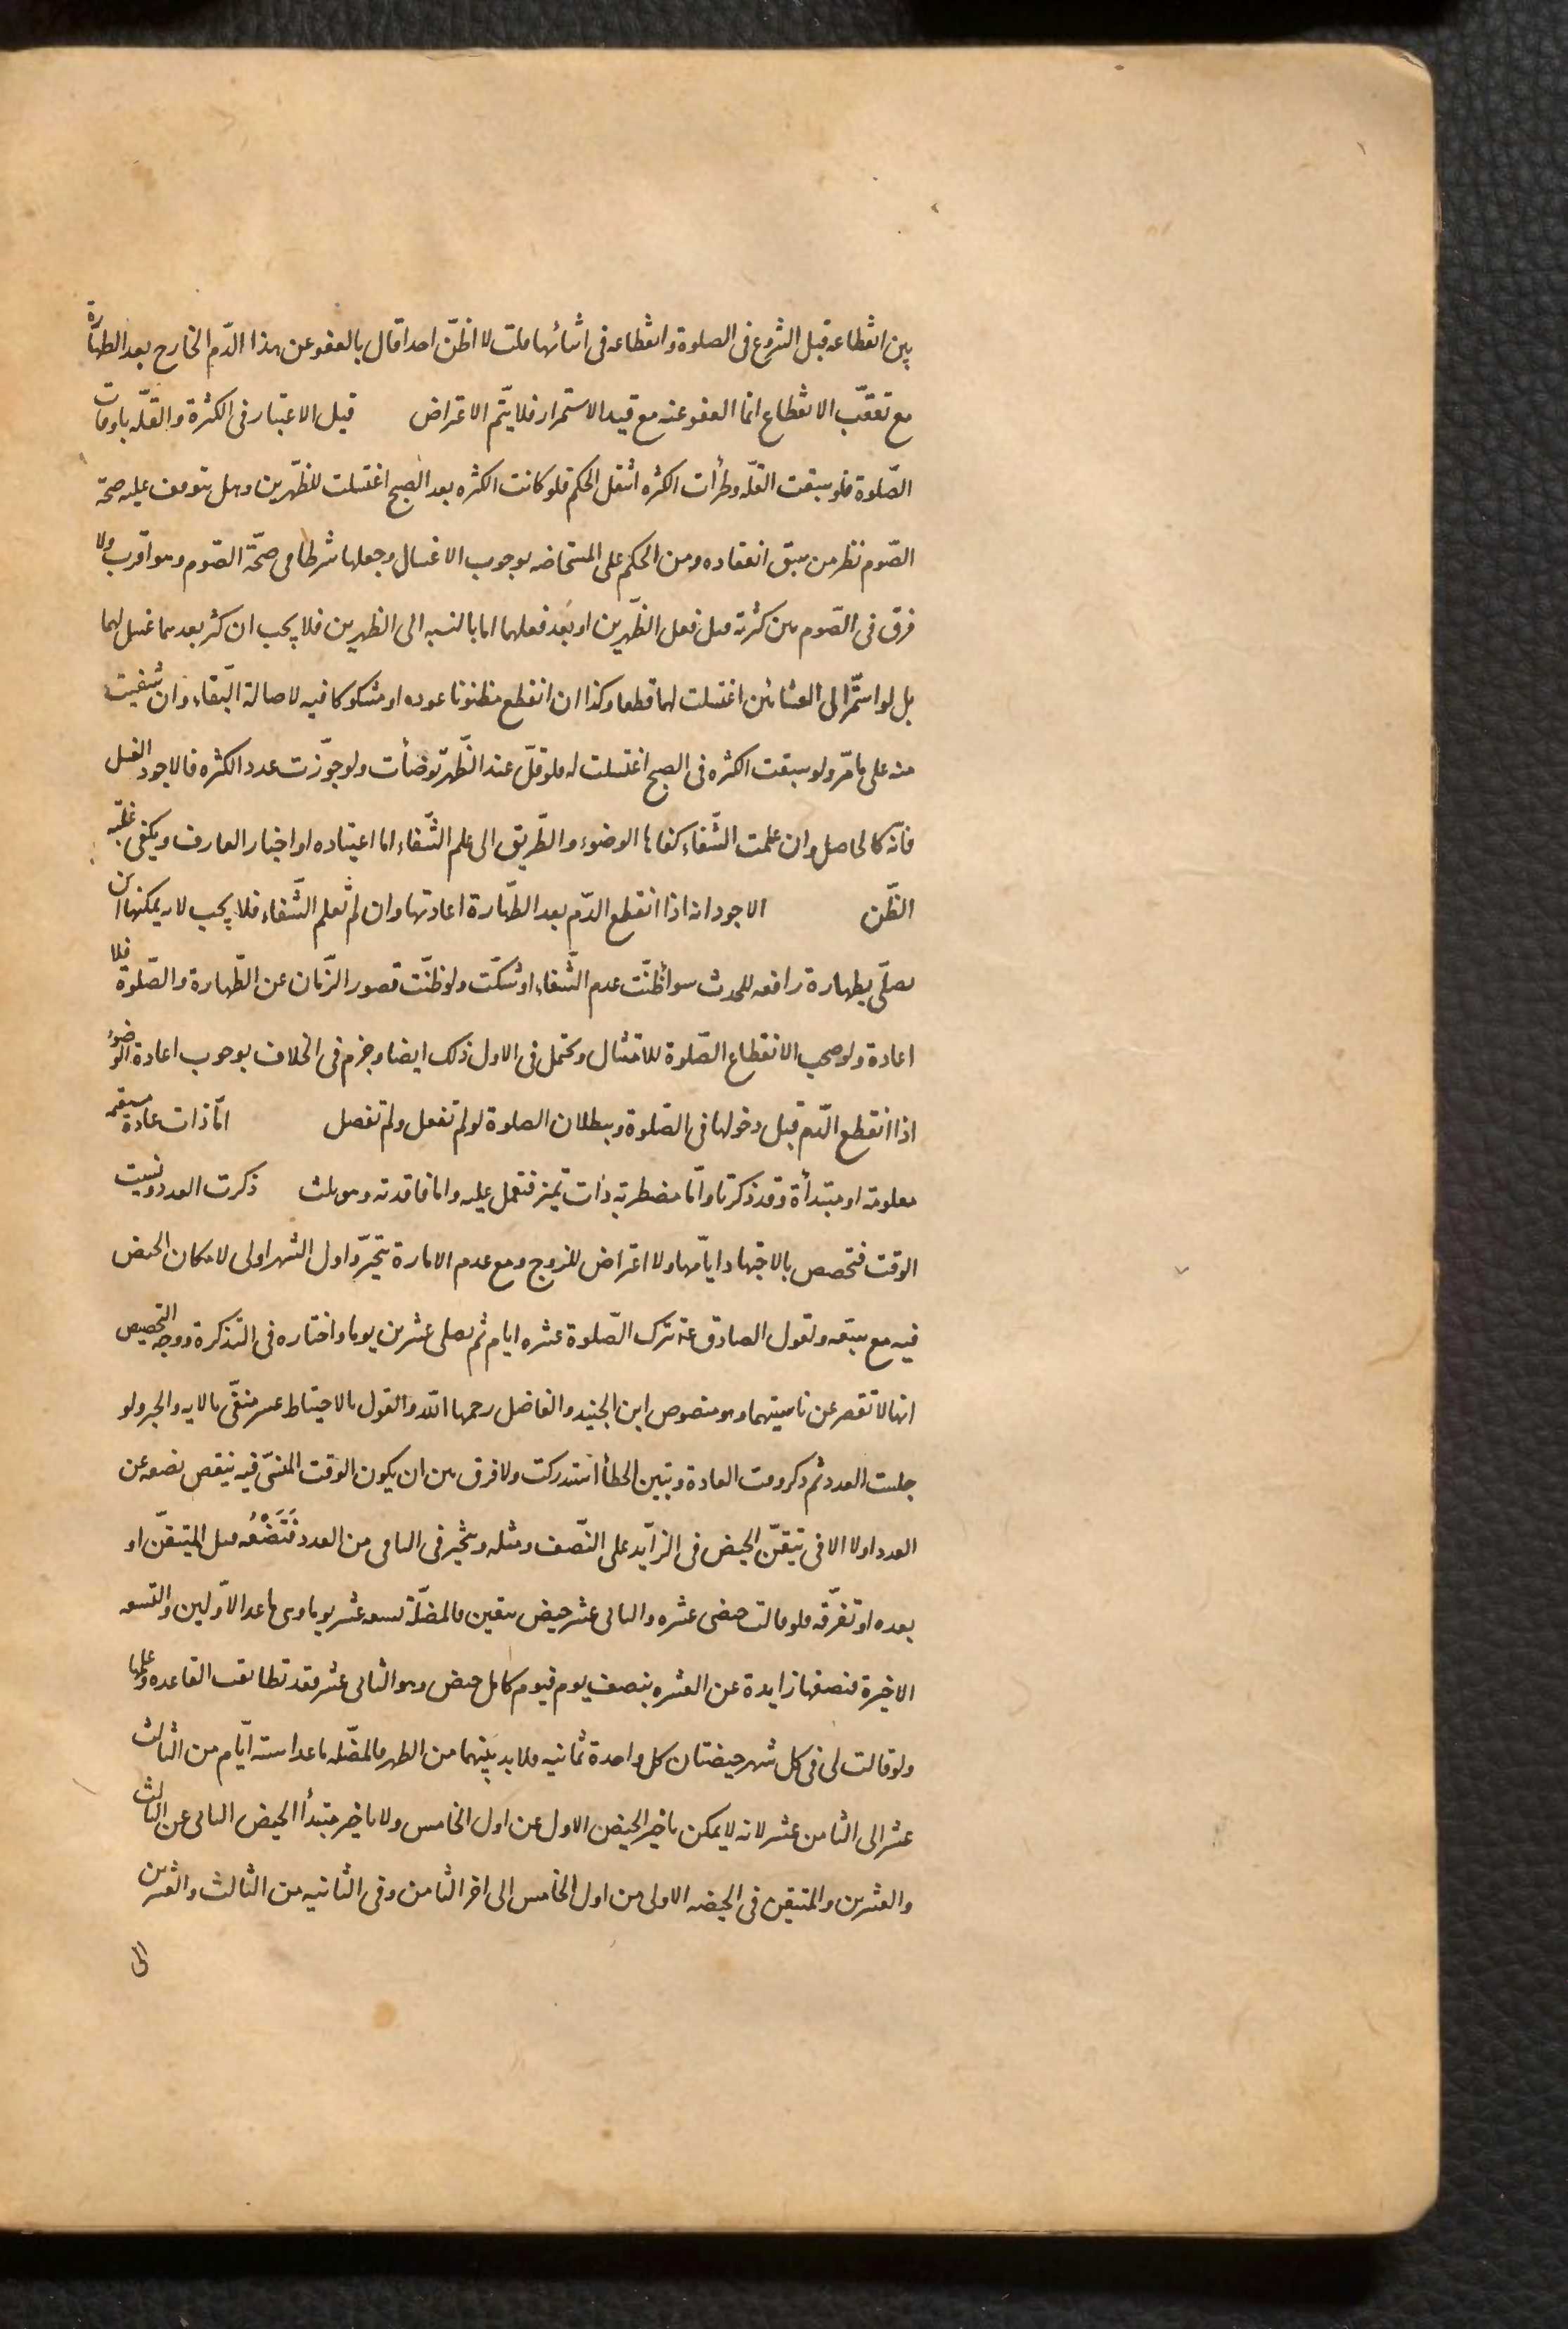 بين انقطاعه قبل الشروع فى الصلوة وانقطاعه فى اثنائها قلت لا اظنّ احدا قال بالعفو عن هذا الدّم الخارج بعد الطهارة
مع تعقّب الانقطاع انما العفو عنه مع قيد الاستمرار فلا يتم الاعتراض قيل الاعتبار فى الكثرة والقلّه باوقات
الصّلوة فلو سبقت القلّه وطرأت الكثره انتقل الحكم فلو كانت الكثره بعد الصبح اغتسلت للظّهرين وهل يتوقف عليه صحة
الصّوم نظر من سبق انعقاده ومن الحكم على المستحاضه بوجوب الاغسال وجعلها شرطا فى صحّة الصّوم وهو اقرب ولا
فرق فى الصّوم بين كثرته قبل فعل الظّهرين او بعد فعلهما اما بالنسبه الى الظهرين فلا يجب ان كثر بعدهما غسل لهما
بل لو استمرّ الى العشائين اغتسلت لهما قطعا وكذا ان انقطع مظنونا عوده او مشكوكا فيه لاصالة البقاء وان شفيت
منه على ما مرّ ولو سبقت الكثره فى الصبح اغتسلت له فلو قلّ عند الظّهر توضأت ولو جوّزت عدد الكثره فالاجود الغسل
فانّه كالحاصل وان علمت الشّفاء كفاها الوضوء والطّريق الى علم الشّفاء اما اعتياده او اخبار العارف ويكفى غلبة
الظّن الاجود انه اذا انقطع الدّم بعد الطّهارة اعادتها وان لم تعلم الشّفاء فلا يجب لانه يمكنها ان
تصلّى بطهارة رافعه للحدث سوأ ظنّت عدم الشّفاء او شكّت ولو ظنّت قصور الزّمان عن الطّهارة والصّلوة فلا
اعادة ولو صحب الانقطاع الصّلوة للامتثال ويحتمل فى الاول ذلك ايضا وجزم فى الخلاف بوجوب اعادة الوضوء
اذا انقطع الدّم قبل دخولها فى الصّلوة وببطلان الصلوة لو لم تفعل ولم تفصل امّا ذات عادة مستقيمه
معلومة او مبتدأة وقد ذكرتا وامّا مضطربه ذات تميز فتعمل عليه واما فاقدته وهو بلث ذكرت العدد ونسيت
الوقت فتخصص بالاجتهاد ايّامها ولا اعتراض للزوج ومع عدم الامارة يتخيّر واول الشهر اولى لامكان الحيض
فيه مع سبقه ولقول الصادق عه تترك الصّلوة عشره ايام ثم تصلى عشرين يوما واختاره فى التذكرة ووجه التخصيص
انها لا تقصر عن ناسيتهما وهو منصوص ابن الجنيد والفاضل رحمهما الله والقول بالاحتياط عسر منفّى بالايه والخبر ولو
جلست العدد ثم ذكر وقت العادة وتبين الخطأ استدركت ولا فرق بين ان يكون الوقت المنسىّ فيه ينقص نصفه عن
العدد اولا الا فى تيقّن الحيض فى الزّايد على النّصف ومثله ويتخير فى الباقى من العدد فَتَضَعُه قبل المتيقّن او
بعده او تفرّقه فلو قالت حيضى عشره والثانى عشر حيض بيقين فالمضلّة تسعه عشر يوما وهى ما عدا الاوّلين والتسعه
الاخيرة فنصفها زايدة عن العشره بنصف يوم فيوم كامل حيض وهو الثانى عشر فقد تطابقت القاعده وعلمها
ولو قالت لى فى كل شهر حيضتان كل واحدة ثمانيه فلا بد بينهما من الطهر فالمضّله ما عدا ستة ايّام من الثالث
عشر الى الثامن عشر لانه لا يمكن تاخير الحيض الاول عن اول الخامس ولا تاخير مبتدأ الحيض الثانى عن الثالث
والعشرين والمتيقن فى الحيضه الاولى من اول الخامس الى اخر الثامن وفى الثانيه من الثالث والعشرين
الى